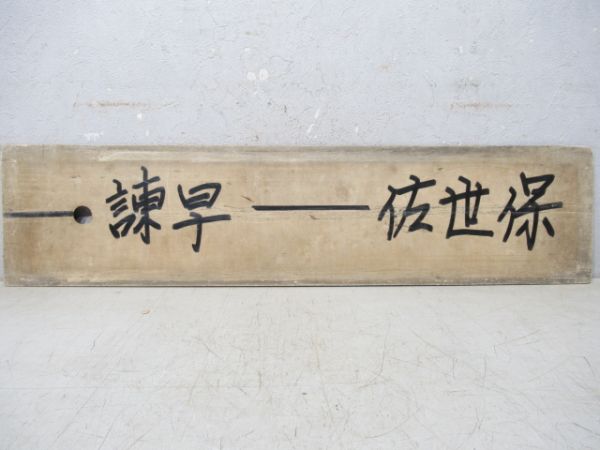 諫早――佐世保